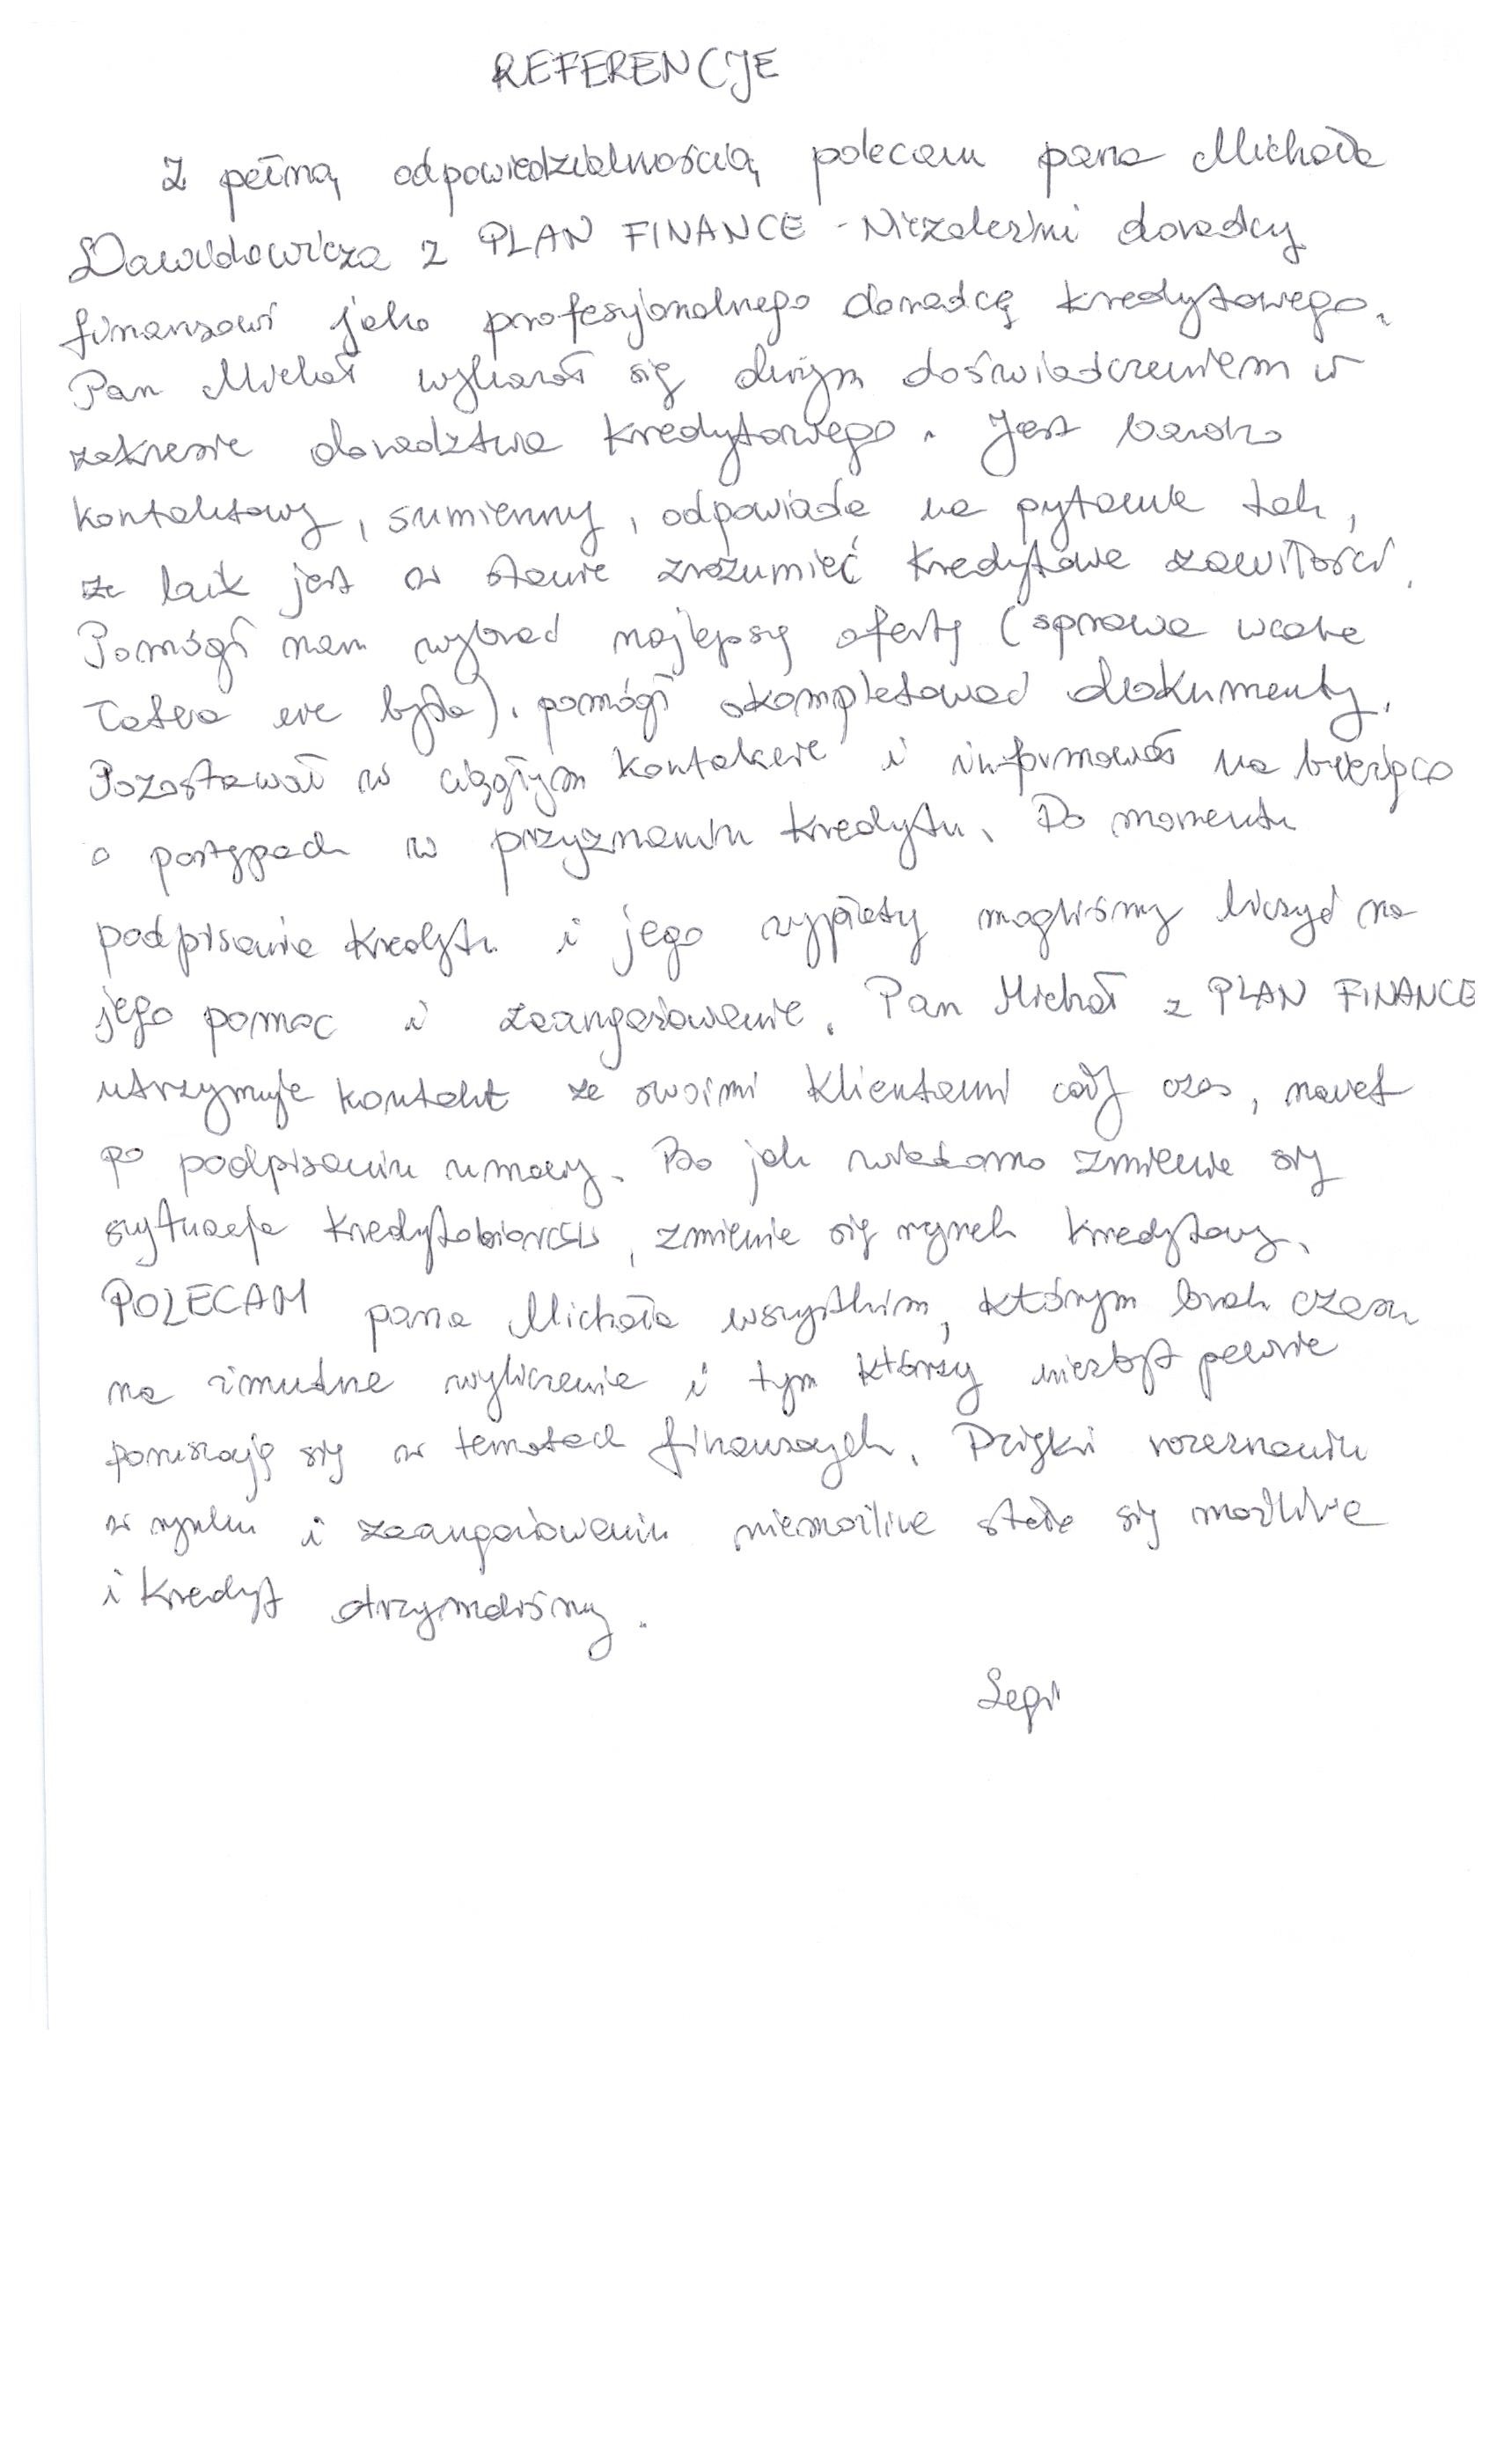 REFERENCJE
Z pełną odpowiedzialnością polecam pana Michała
Dawidowicza z PLAN FINANCE - Niezależni doradcy
finansowi jako profesjonalnego doradcę kredytowego.
Pan Michał wykazał się dużym doświadczeniem w
zakresie doradztwa kredytowego. Jest bardzo
kontaktowy, sumienny, odpowiada na pytania tak,
że laik jest w stanie zrozumieć kredytowe zawiłości.
Pomógł nam wybrać najlepszą ofertę (sprawa wcale
łatwa nie była), pomógł skompletować dokumenty.
Pozostawał w ciągłym kontakcie i informował na bieżąco
o postępach w przyznaniu kredytu. Do momentu
podpisania kredytu i jego wypłaty mogliśmy liczyć na
jego pomoc i zaangażowanie. Pan Michał z PLAN FINANCE
utrzymuje kontakt ze swoimi klientami cały czas, nawet
po podpisaniu umowy. Bo jak wiadomo zmienia się
sytuacja kredytobiorców, zmienia się rynek kredytowy.
POLECAM pana Michała wszystkim, którym brak czasu
na żmudne wyliczenia i tym którzy niezbyt pewnie
poruszają się w tematach finansowych. Dzięki rozeznaniu
w rynku i zaangażowaniu niemożliwe stało się możliwe
i kredyt otrzymaliśmy.